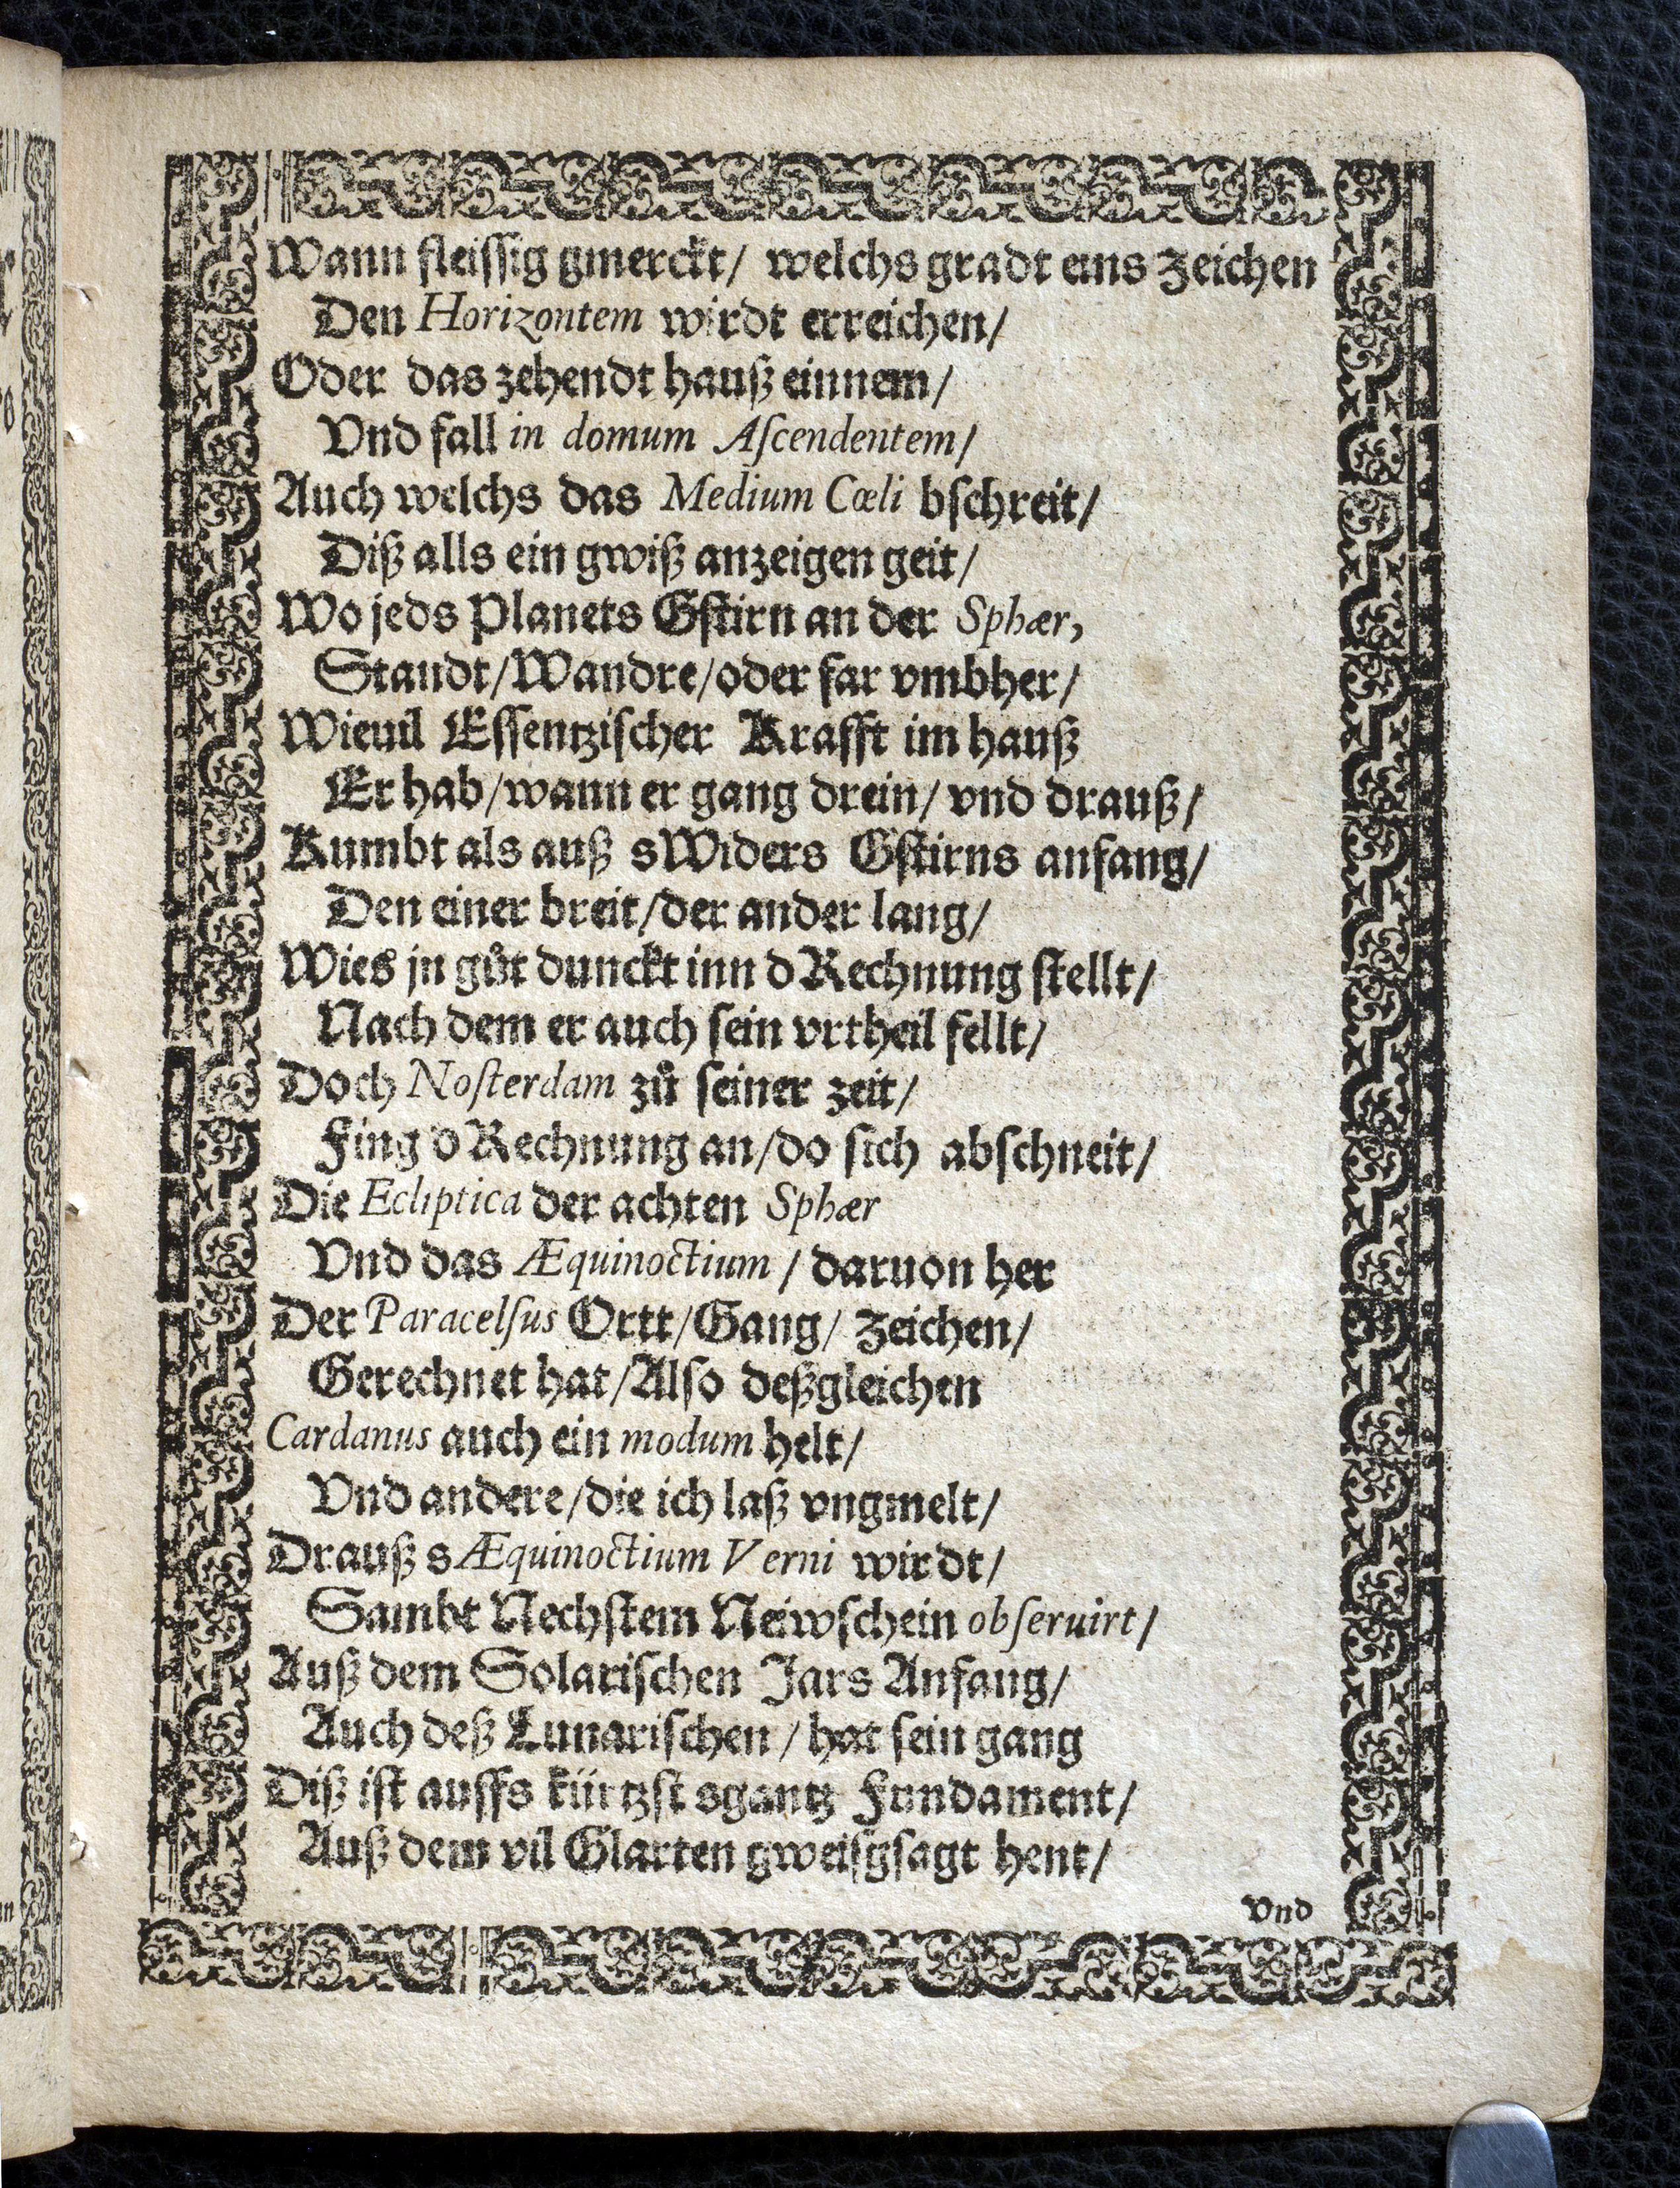 Wann fleissig gmerckt/ welchs gradt eins Zeichen
Den Horizontem wirdt erreichen/
Oder das zehendt hauß einnem/
Vnd fall in domum Aſcendentem/
Auch welchs das Medium Cœli bſchreit/
Diß alls ein gwiß anzeigen geit/
Wo jeds Planets Gſtirn an der Sphær,
Standt/Wandre/oder far vmbher/
Wieuil Eſſentziſcher Krafft im hauß
Er hab/wann er gang drein/ vnd drauß/
Kumbt als auß sWiders Gſtirns anfang/
Den einer breit/der ander lang/
Wies jn gůt dunckt inn d Rechnung ſtellt/
Nach dem er auch ſein vrtheil fellt/
Doch Noſterdam zů ſeiner zeit/
Fing d Rechnung an/do ſich abſchneit/
Die Ecliptica der achten Sphær
Vnd das Æquinoctium / daruon her
Der Paracelſus Ortt/Gang/ Zeichen/
Gerechnet hat/Alſo deßgleichen
Cardanus auch ein modum helt/
Vnd andere/die ich laß vngmelt/
Drauß s Æquinoctium Verni wirdt/
Sambt Nechſtem Neiwſchein obſeruirt/
Auß dem Solariſchen Jars Anfang/
Auch deß Lunariſchen / hat ſein gang
Diß iſt auffs kürtzſt sgantz Fundament/
Auß dem vil Glarten gweiſgſagt hent/
Vnd